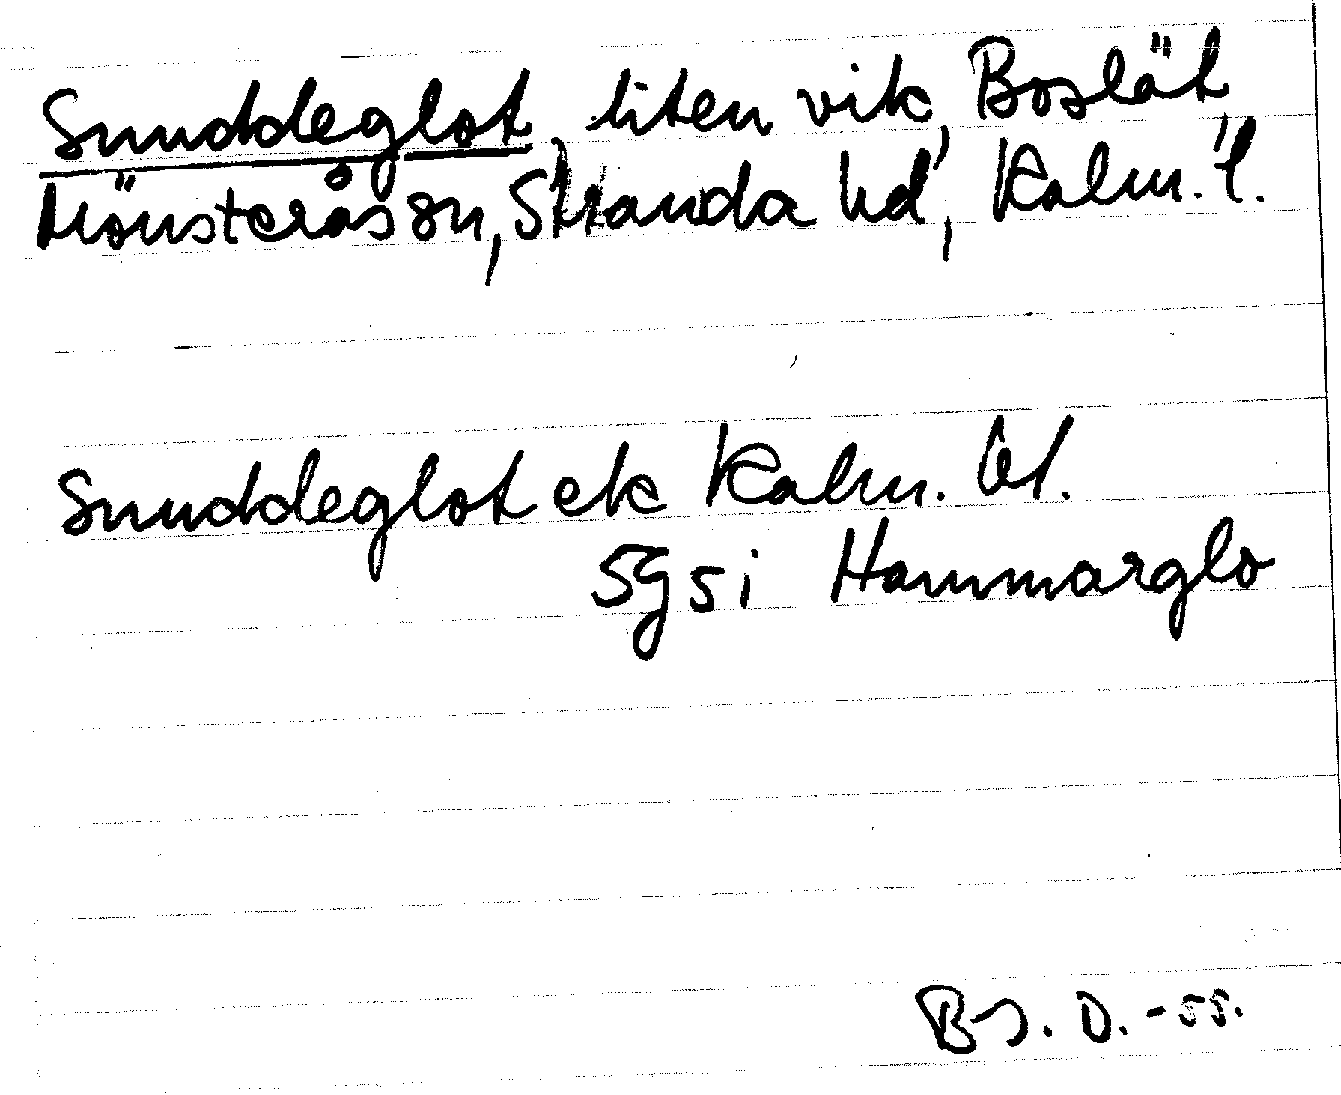 Snuddeglot, liten vik, Boslät,
Mönsterås sn, Stranda hd, Kalm. l.
Snuddeglot ek Kalm. bl.
5g5i Hammarglo
BJ. D. -55.